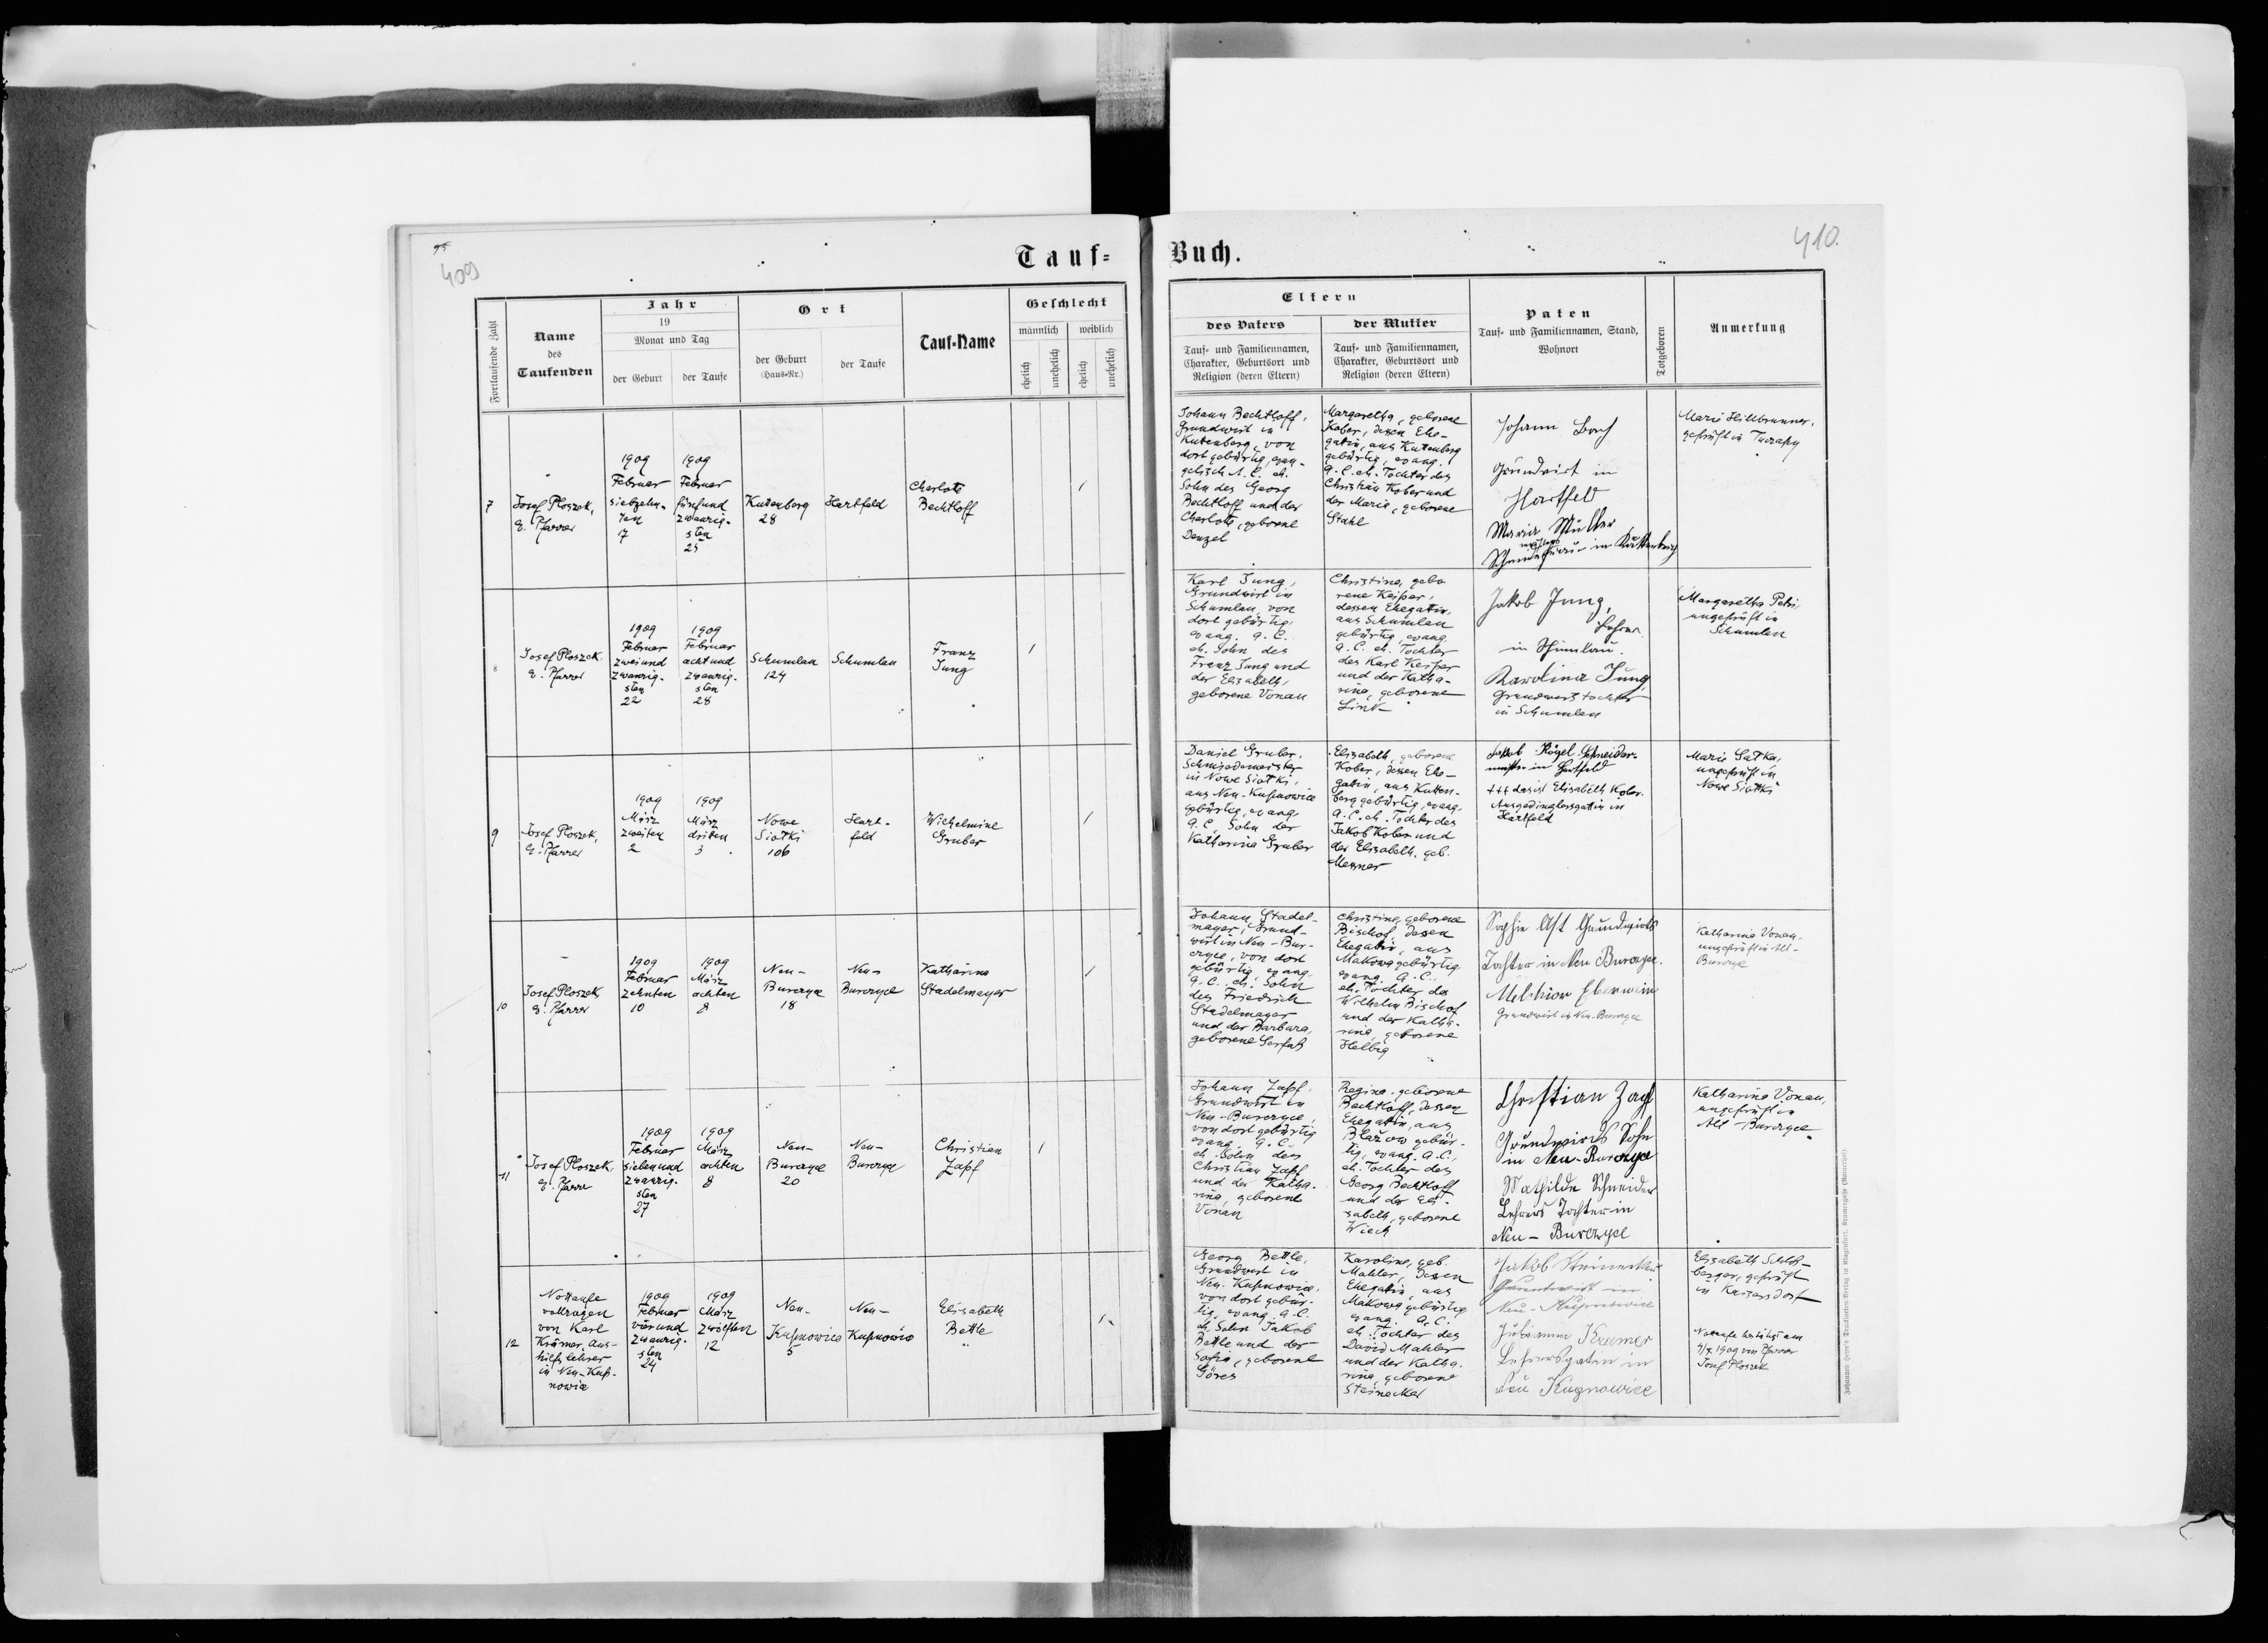 95
409
Tauf=
Fortlaufende Zahl
Name
des
Taufenden
Jahr
19
Monat und Tag
der Geburt
der Taufe
Ort
der Geburt
(Haus-Nr.)
der Taufe
Tauf-Name
Geschlecht
männlich
weiblich
ehelich
unehelich
ehelich
unehelich
7
Josef Ploszek,
E. Pfarrer
1909
Februar
siebzehn-
ten
17
1909
Februar
fünfund
zwanzig-
sten
25
Kutenberg
28
Hartfeld
Charlote
Bechtloff
8
Josef Ploszek.
E. Pfarrer
1909
Februar
zweiund
zwanzig-
sten
22
1909
Februar
achtund
zwanzig-
sten
28
Schumlau
124
Schumlau
Franz
Jung
9
Josef Ploszek,
E. Pfarrer
1909
März
zweiten
2
1909
März
driten
3
Nowe
Siotki
106
Hart-
feld
Wilhelmine
Gruber
10
Josef Ploszek
E. Pfarrer
1909
Februar
zehnten
10
1909
März
achten
8
Neu-
Burczyce
18
Neu-
Burczyce
Katharina
Stadelmayer
11
Josef Ploszek,
E. Pfarrer
1909
Februar
siebenund
zwanzig-
sten
27
1909
März
achten
8
Neu-
Burczyce
20
Neu-
Burczyce
Christian
Zapf
12
Nottaufe
vollzogen
von Karl
Krämer, Aus-
hilfslehrer
in Neu-Kup-
nowice
1909
Februar
vierund
zwanzig-
sten
24
1909
März
zwölften
12
Neu-
Kupnowice
5
Neu-
Kupnowice
Elisabeth
Bettle
Buch.
410.
Eltern
des Vaters
Tauf- und Familiennamen,
Charakter, Geburtsort und
Religion (deren Eltern)
der Mutter
Tauf- und Familiennamen,
Charakter, Geburtsort und
Religion (deren Eltern)
Paten
Tauf- und Familiennamen, Stand,
Wohnort
Totgeboren
Anmerkung
Johann Bechtloff,
Grundwirt in
Kutenberg, von
dort gebürtig, evan-
gelisch A. C. eh.
Sohn des Georg
Bechtloff und der
Charlote, geborene
Denzel
Margaretha, geborene
Kober, dessen Ehe-
gatin, aus Kutenberg
gebürtig, evang.
A. C. eh. Tochter des
Christian Kober und
der Marie, geborene
Stahl
Johann
Grundwirt in
Hartfeld
Maria Müller
in
Marie Hillbrunner,
geprüft in
Karl Jung,
Grundwirt in
Schumlau, von
dort gebürtig,
evang. A. C.
eh. Sohn des
Franz Jung und
der Elisabeth,
geborene Vonau
Christina, gebo
rene Keiper,
dessen Ehegatin,
aus Schumlau
gebürtig, evang.
A. C. eh. Tochter
des Karl Keiper
und der Katha-
rina, geborene
Link
Jakob Jung,
Lehrer
in Schumlau.
Karolina Jung
Grundwirtstochter
in Schumlau
Margaretha Petri,
ungeprüft in
Schumlau
Daniel Gruber,
Schmiedemeister
in Nowe Siotki,
aus Neu-Kupnowice
gebürtig, evang.
A. C. Sohn der
Katharina Gruber
Elisabeth, geborene
Kober, dessen Ehe-
gattin, aus Kutten-
berg gebürtig, evang.
A. C. eh. Tochter des
Jakob Kober und
der Elisabeth, geb.
Messner
Jakob Kögel Schneider-
meister in Hartfeld
+++ das ist Elisabeth Kober.
Ausgedinglersgatin in
Hartfeld
Marie Satka,
ungeprüft in
Nowe Siotki
Johann Stadel-
mayer, Grund-
wirt in Neu-Bur-
czyce, von dort
gebürtig, evang.
A. C., eh. Sohn
des Friedrich
Stadelmayer
und der Barbara,
geborene Serfaß
Christina, geborene
Bischof, dessen
Ehegatin, aus
Makowa gebürtig
evang. A. C.
eh. Tochter des
Wilhelm Bischof
und der Katha-
rina, geborene
Helbig
Sophie Ast Grundwirts
Tochter in Neu Burczyce.
Melchior Eberwein
Grundwirt in Neu-Burczyce
Katharina Vonau,
ungeprüft in Alt-
Burczyce
Johann Zapf,
Grundwirt in
Neu-Burczyce,
von dort gebürtig
evang. A. C.
eh. Sohn des
Christian Zapf
und der Katha-
rina, geborene
Vonau
Regina, geborene
Bechtloff, dessen
Ehegatin, aus
Blażow gebür-
tig, evang. A. C.,
eh. Tochter des
Georg Bechtloff
und der Eli-
sabeth, geborene
Wiech
Christian Zapf
Grundwirts Sohn
in Neu-Burczyce
Mathilde Schneider
Lehrers Tochter in
Neu-Burczyce
Katharina Vonau,
ungeprüft in
Alt Burczyce
Georg Bettle,
Grundwirt in
Neu-Kupnowice,
von dort gebür-
tig, evang. A. C.
eh. Sohn Jakob
Bettle und der
Sofia, geborene
Göres
Karoline, geb.
Mahler, dessen
Ehegatin, aus
Makowa gebürtig
evang. A. C.
eh. Tochter des
David Mahler
und der Katha-
rina, geborene
Steinackel
Jakob
Grundwirt in
Neu-Kupnowice
Kramer
Lehrersgaten in
Neu Kupnowice
Elisabeth Schloß-
berger, geprüft
in Kaisersdorf
Nottaufe bestätigt am
1909 von Pfarrer
Josef Ploszek